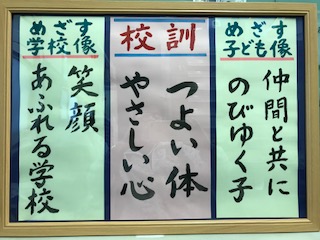 めざす
子ども像
仲間と共に
のびゆく子
校訓
つよい体
やさしい心
めざす
学校像
笑顔
あふれる学校